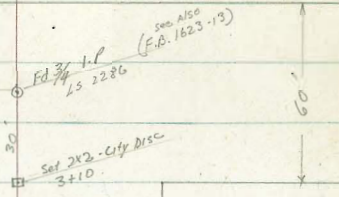 see Also
(F.B. 1623-13)
Fd 3/4 I.P
LS 2286
60'
30'
Set 2x2-City Disc
3+10